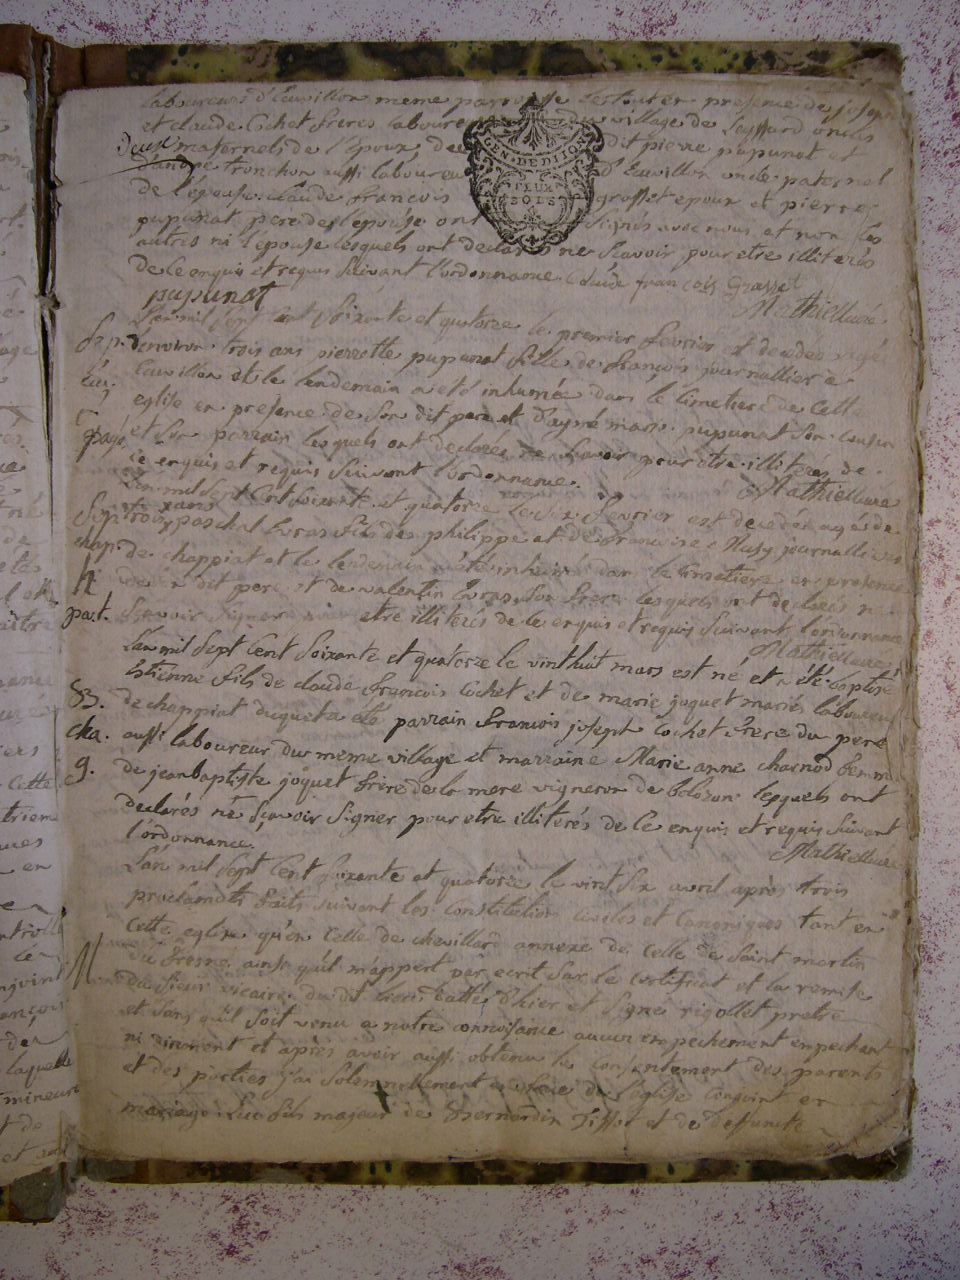 laboureurs d'Euvillon meme parroisse le tout en presence de joseph
et claude Cochet freres laboureurs du village de Leyssard oncles
Deux maternels de l'epoux de dit pierre pupunat et
d'andre tronchon aussi laboureur d'Euvillon oncle paternel
de l'epouse. Claude francois grosset epoux et pierre
pupunat pere de l'epouse ont signés avec nous et non les
autres ni l'épouse lesquels ont declarés ne scavoir pour etre illiterés
de ce enquis et requis suivant l'ordonnance Claude francois Grosset
pupunat Mathieu curé
GEN. DE DIJON
DEUX
SOLS
L'an mil sept cent soixante et quatorze le premier fevrier est decedée agée
Sep. d'environ trois ans pierrette pupunat fille de françois journallier à
Euvillon et le lendemain a eté inhumée dans le Cimetiere de cette
eglise en presence de son dit pere et d'aymé marie pupunat son cousin
et son parrain lesquels ont declarés ne scavoir pour etre illiterés de
ce enquis et requis suivant l'ordonnance. Mathieu curé
L'an mil sept cent soixante et quatorze le six fevrier est decedé agé de
Sep. trois ans paschal Evras fils de philippe et de francoise Musy journalliers
chap. de chappiat et le lendemain a été inhumé dans le Cimetiere en presence
de son dit pere et de valentin Evras son frere lesquels ont declarés ne
scavoir signer pour etre illiterés de ce enquis et requis suivant l'ordonnance
Mathieu curé
L'an mil sept cent soixante et quatorze le vinthuit mars est né et a été baptisé
Estienne fils de claude francois Cochet et de marie joquet mariés laboureurs
83. de chappiat duquel a été parrain francois joseph Cochet frere du pere
cha. aussi laboureur du meme village et marraine Marie anne charnod femme
9. de jean baptiste joquet frere de la mere vigneron de bolozon lesquels ont
declarés ne sçavoir signer pour etre illiterés de ce enquis et requis suivant
l'ordonnance. Mathieu curé
L'an mil sept cent soixante et quatorze le vint six avril après trois
proclamats faits suivant les Constitutions Civiles et Canoniques tant en
Cette eglise qu'en celle de chevillard annexe de celle de Saint martin
M. du fresne ainsi qu'il m'appert par ecrit sur le certificat et la remise
du Sieur vicaire du dit lieu datté d'hier et signé rigollet pretre
et sans qu'il soit venu a notre connoissance aucun empechement empechant
ni rinement et après avoir aussi obtenu le consentement des parents
et des parties j'ai solemnellement en face de l'eglise conjoint en
mariage Luc fils majeur de Bernardin Tissot et de deffuncte